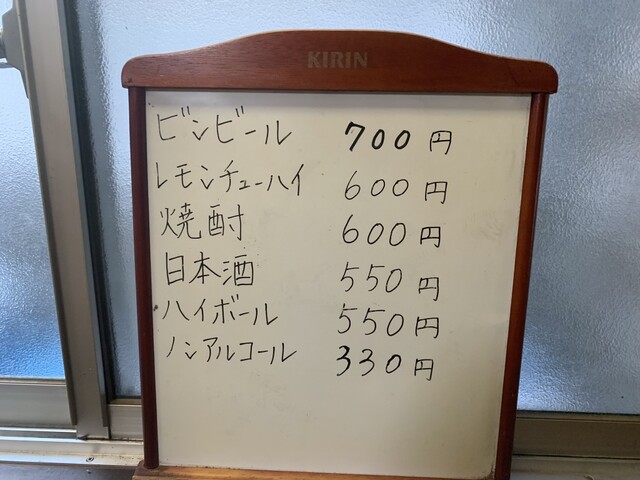 KIRIN
ビンビール 700円
レモンチューハイ 600円
焼酎 600円
日本酒 550円
ハイボール 550円
ノンアルコール 330円